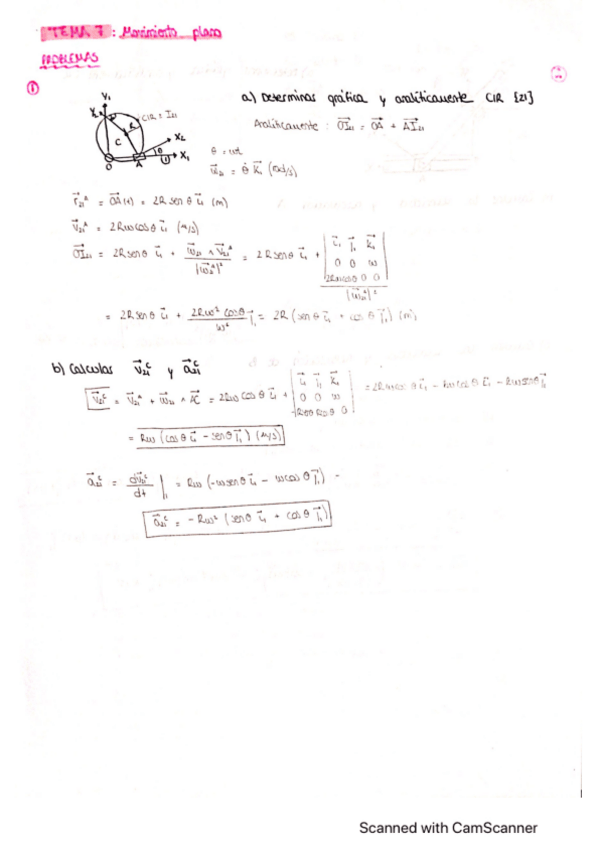 TEMA 7: Movimiento plano
PROBLEMAS
① a) Determinar gráfica y analíticamente CIR {21}
Analíticamente : OI₂₁ = OA + AI₂₁
Y₁
CIR = I₂₁
R
C
X₂
θ
O A ① X₁
θ = ωt
ω⃗₂₁ = θ̇ k⃗₁ (rad/s)
r⃗₂₁ᴬ = OA(t) = 2R sen θ i⃗₁ (m)
v⃗₂₁ᴬ = 2Rω cos θ i⃗₁ (m/s)
OI₂₁ = 2R sen θ i⃗₁ + (ω⃗₂₁ ∧ v⃗₂₁ᴬ) / |ω⃗₂₁|² = 2R sen θ i⃗₁ + | i⃗₁ j⃗₁ k⃗₁ ; 0 0 ω ; 2Rω cos θ 0 0 | / |ω⃗₂₁|²
= 2R sen θ i⃗₁ + 2Rω² cos θ / ω² j⃗₁ = 2R (sen θ i⃗₁ + cos θ j⃗₁) (m)
b) Calcular v⃗₂₁ᶜ y a⃗₂₁ᶜ
v⃗₂₁ᶜ = v⃗₂₁ᴬ + ω⃗₂₁ ∧ AC = 2Rω cos θ i⃗₁ + | i⃗₁ j⃗₁ k⃗₁ ; 0 0 ω ; -Rsenθ Rcosθ 0 | = 2Rω cos θ i⃗₁ - Rω cos θ i⃗₁ - Rω sen θ j⃗₁
= Rω (cos θ i⃗₁ - sen θ j⃗₁) (m/s)
a⃗₂₁ᶜ = dv⃗₂₁ᶜ / dt |₁ = Rω (-ω sen θ i⃗₁ - ω cos θ j⃗₁) -
a⃗₂₁ᶜ = -Rω² (sen θ i⃗₁ + cos θ j⃗₁)
Scanned with CamScanner